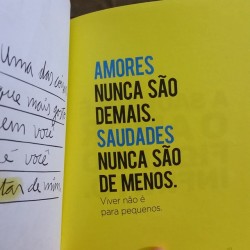 uma das coisas
que mais gosto
em você
é você
de mim
AMORES
NUNCA SÃO
DEMAIS.
SAUDADES
NUNCA SÃO
DE MENOS.
Viver não é
para pequenos.